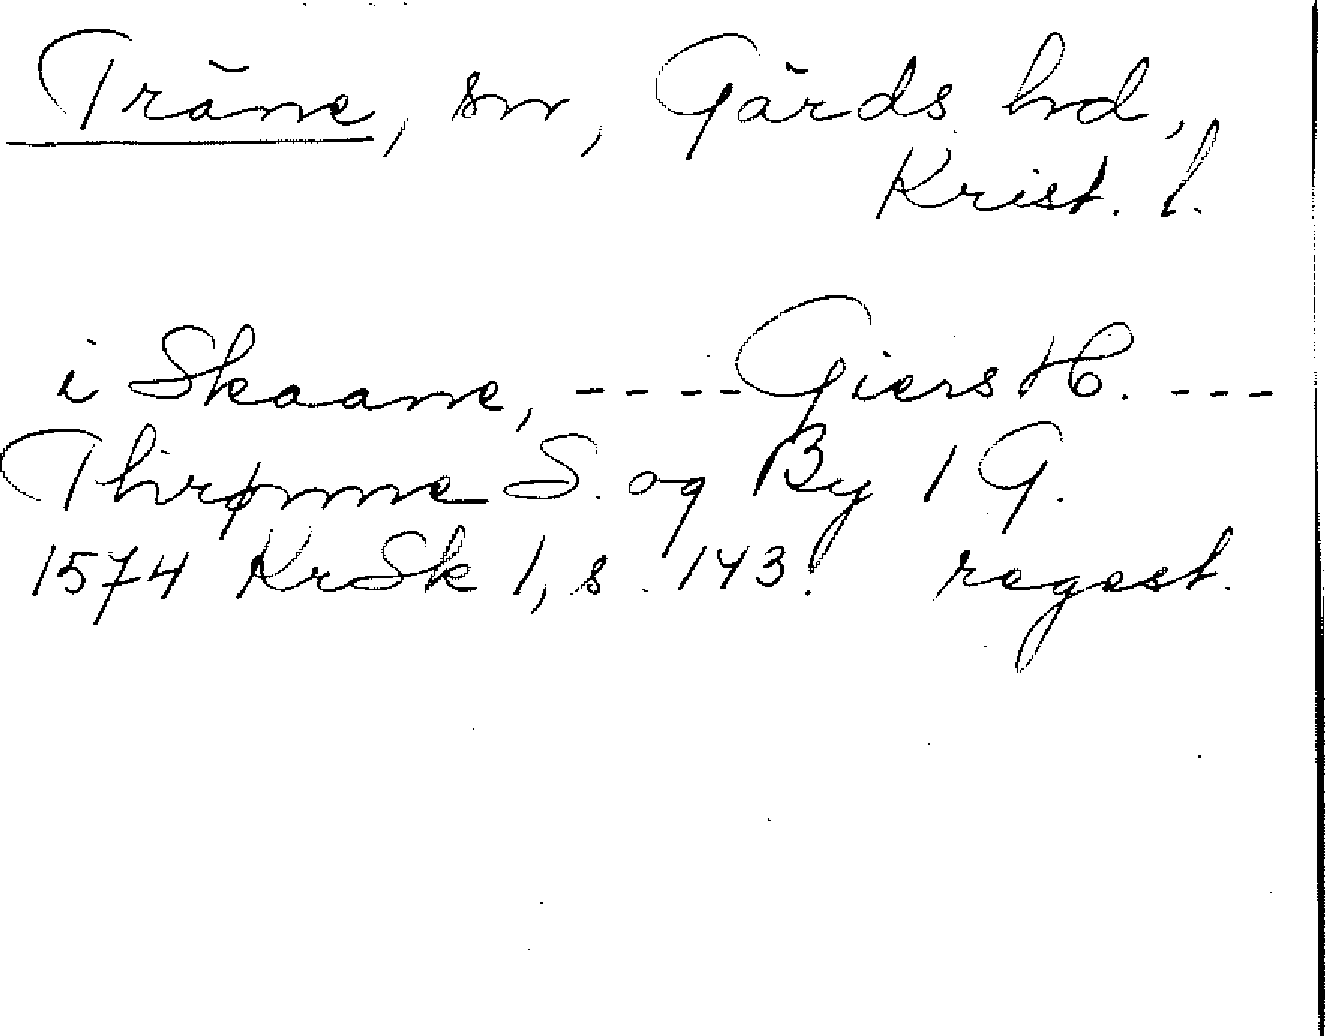 Träne, sn, Gärds hd,
Krist. l.
i Skaane, ---- Giers H. ---
Thrønne S. og By 1 G.
1574 KrSk 1, s. 143. regest.